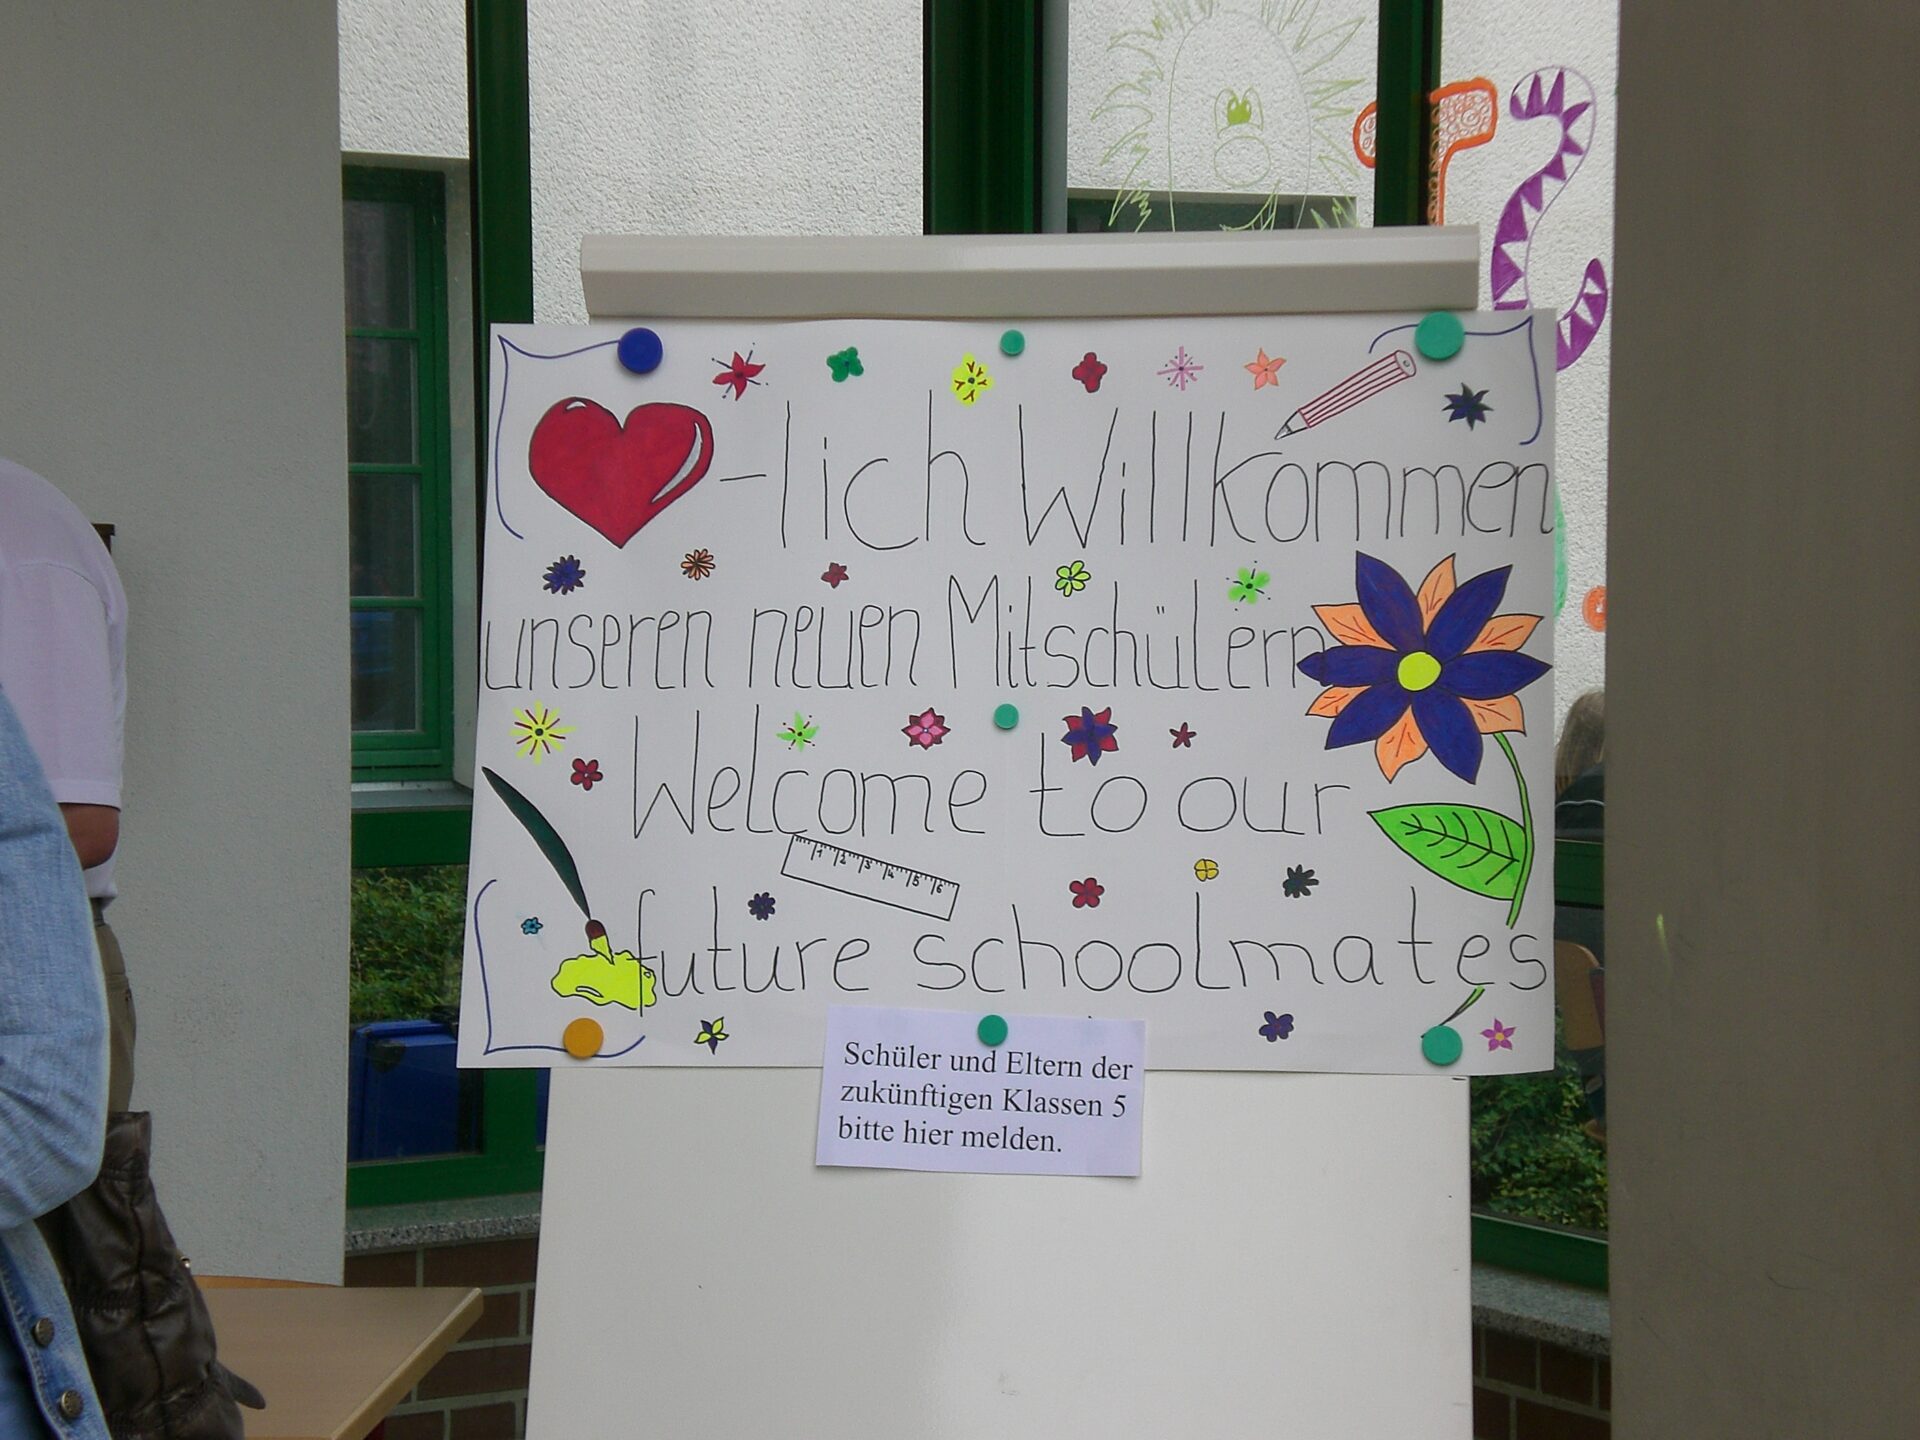 -lich Willkommen
unseren neuen Mitschülern
Welcome to our
1 2 3 4 5 6
future schoolmates
Schüler und Eltern der
zukünftigen Klassen 5
bitte hier melden.